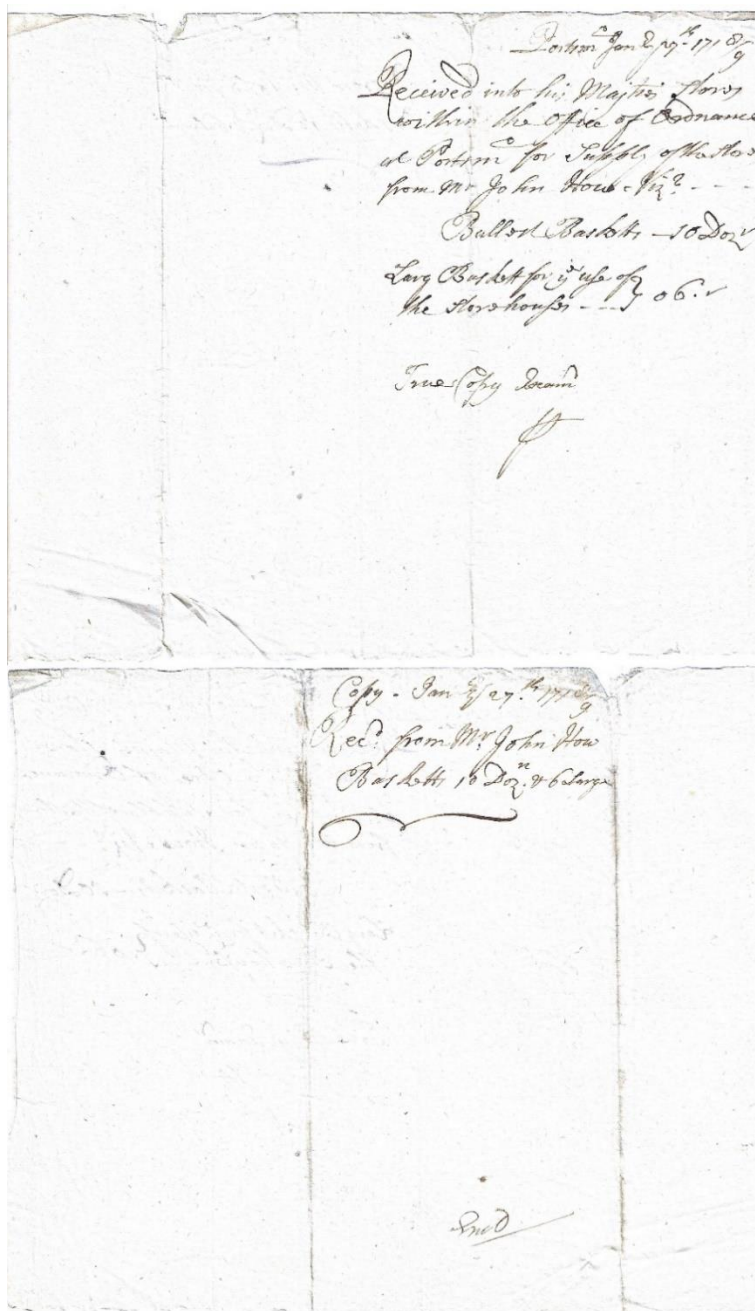 Portsmo Jan ry 27th 171 8/9
Received into his Majties Stores
within the Office of Ordnance
at Portsmo for Supply of the Stores
from Mr John How - Viz.t - - -
Ballest Basketts - 10 Dozn
Larg Baskett for ye use of }
the Storehouses - - - } 06.
True Copy Exam
Copy - Jan ry 27th 171 8/9
Recd from Mr John How
Basketts 10 Dozn & 6 Large
Entd